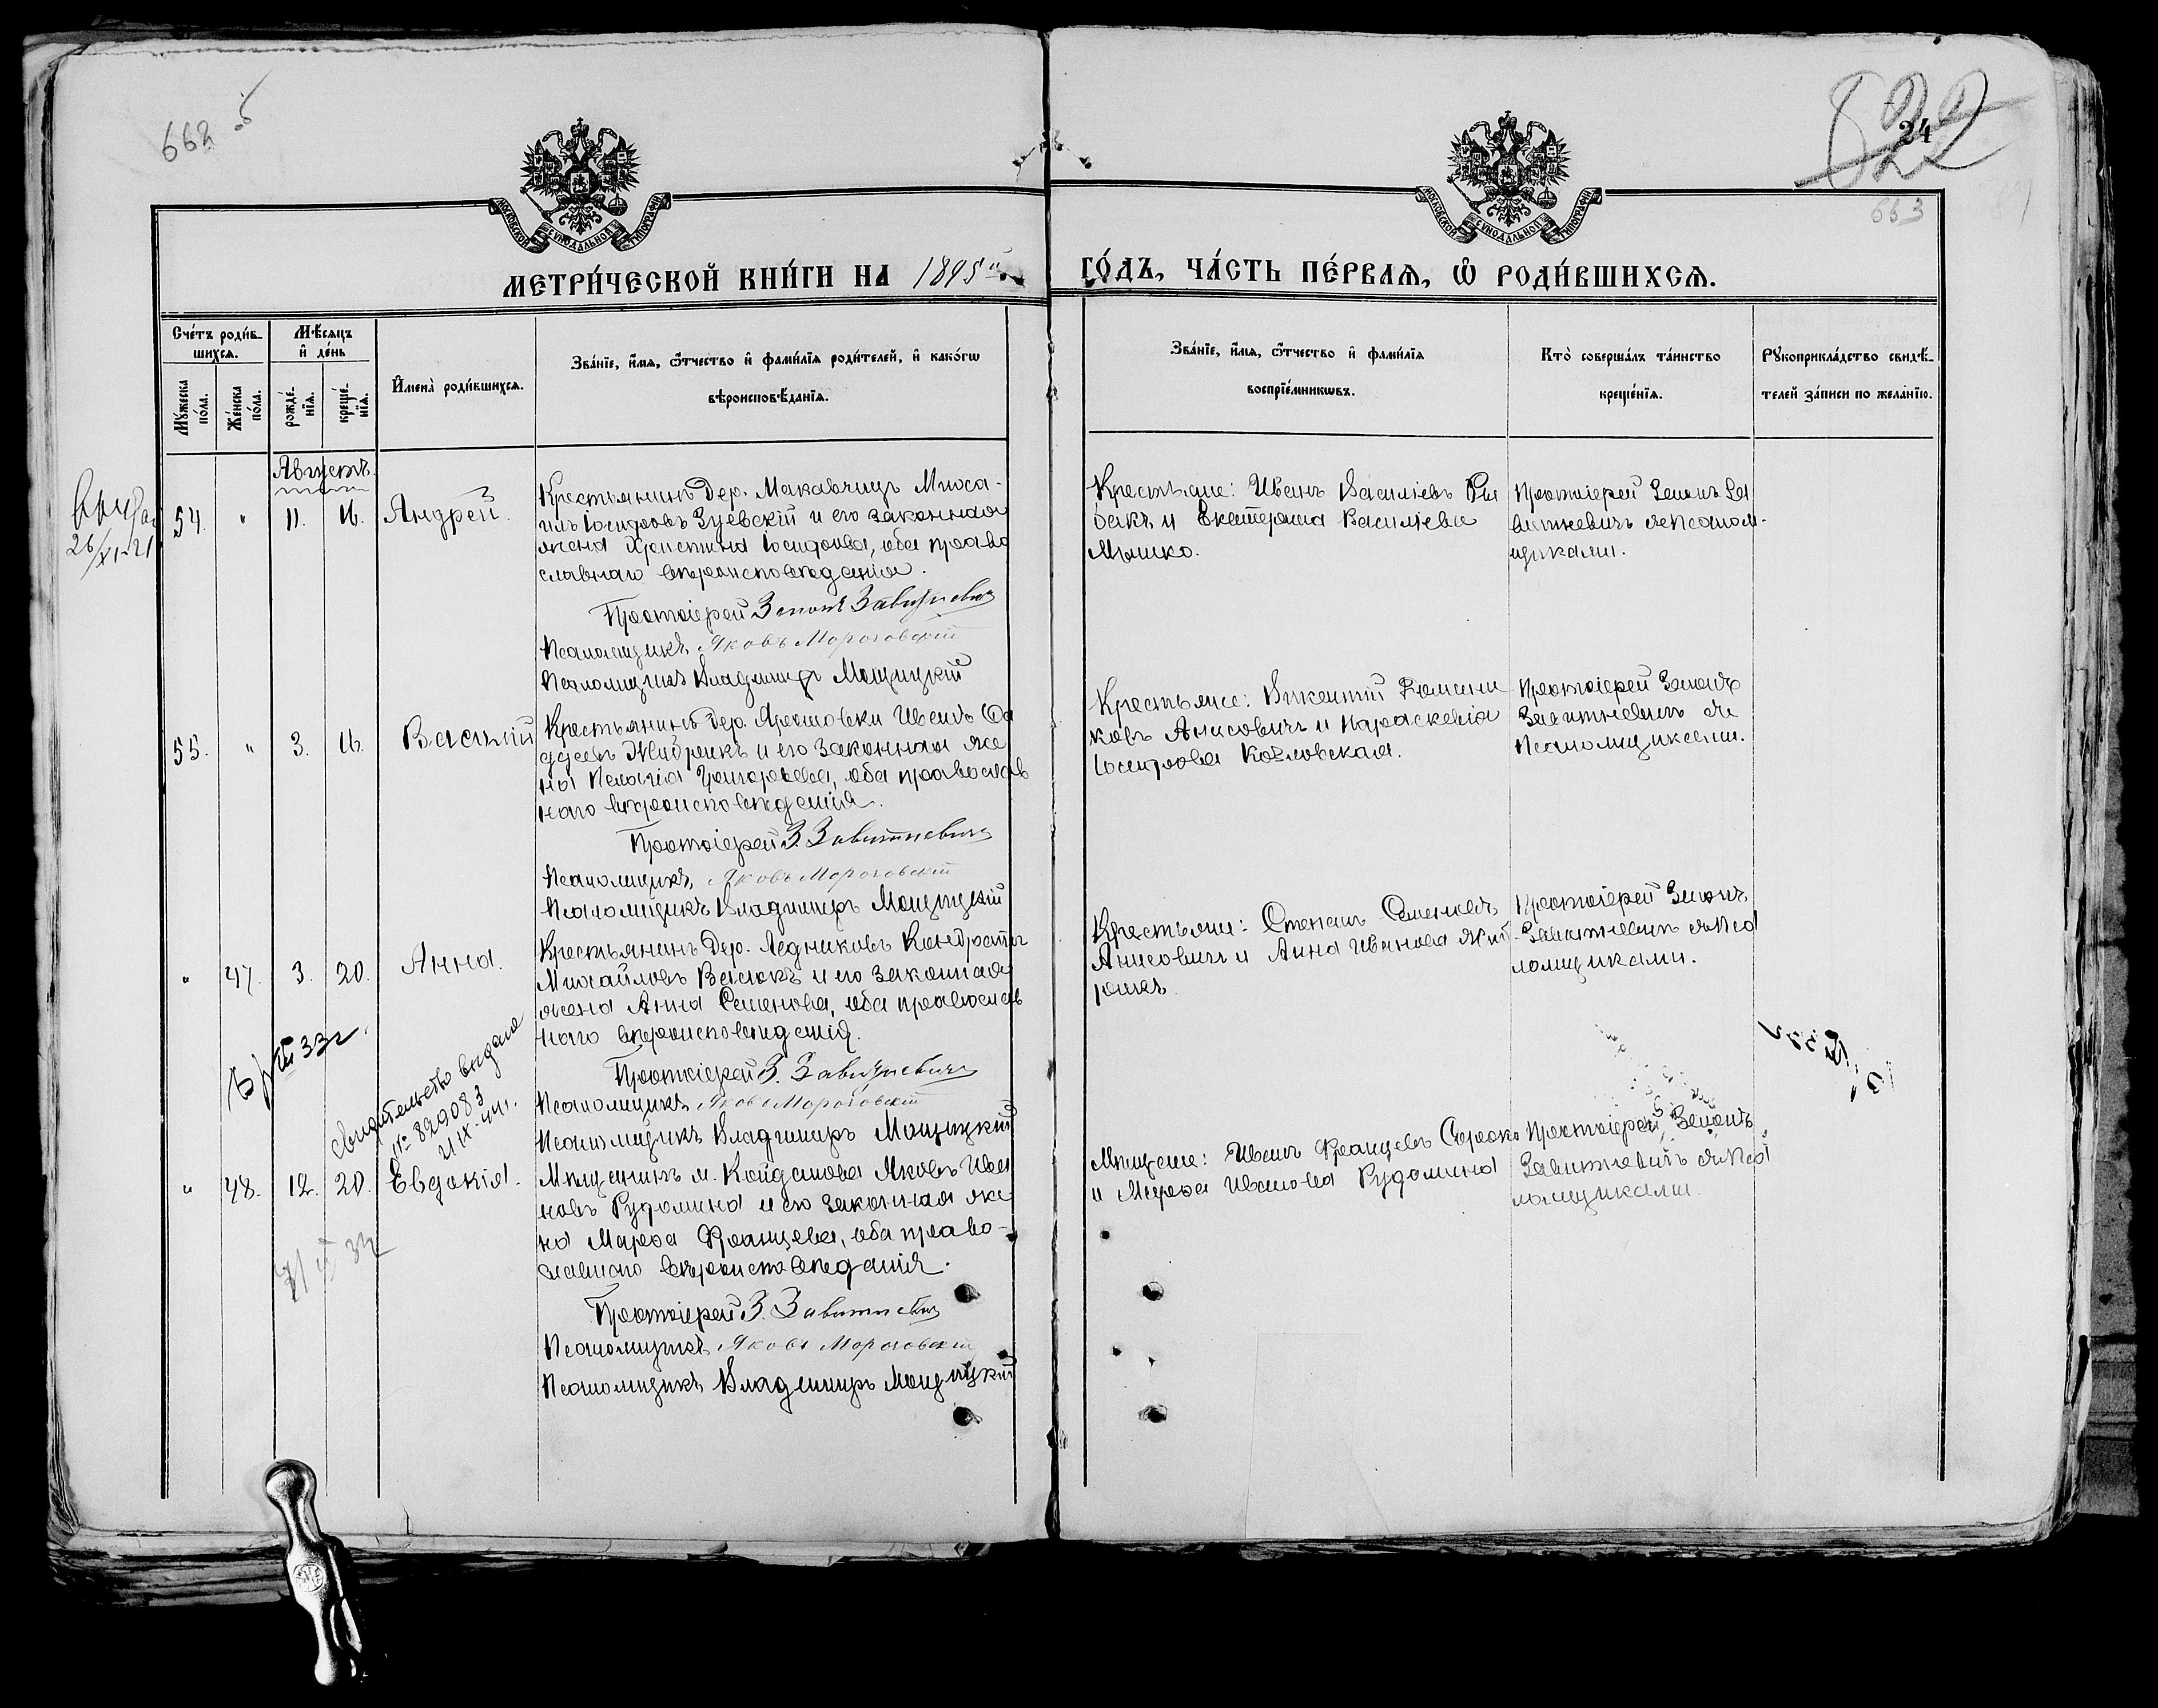 662 об
822
24
663
МОСКОВСКОЙ СУНОДАЛЬНОЙ ТИПОГРАФІИ
МОСКОВСКОЙ СУНОДАЛЬНОЙ ТИПОГРАФІИ
МЕТРИ́ЧЕСКОЙ КНИ́ГИ НА 1895й
ГО́ДЪ, ЧА́СТЬ ПЕ́РВАѦ, Ѡ҆ РОДИ́ВШИХСѦ.
Сче́тъ роди́в-
шихсѧ.
Мꙋ́жеска по́ла.
Же́нска по́ла.
Мѣ́сѧцъ
и҆ де́нь
рожде́-
нїѧ.
креще́-
нїѧ.
И҆мена̀ роди́вшихсѧ.
Зва́нїе, и҆́мѧ, ѻ҆́тчество и҆ фами́лїѧ роди́телей, и҆ како́гѡ
вѣроисповѣ́данїѧ.
Зва́нїе, и҆́мѧ, ѻ҆́тчество и҆ фами́лїѧ
воспрїе́мникѡвъ.
Кто̀ соверша́лъ та́инство
креще́нїѧ.
Рꙋкоприкла́дство свидѣ́-
телей за́писи по жела́нїю.
Августъ
26/XI-21
54. " 11. 16. Андрей.
Крестьянинъ дер. Макавчицъ Миха-
илъ Іосифовъ Зуевскій и его законная
жена Христина Іосифова, оба право
славнаго вѣроисповѣданія.
Протоіерей Зенонъ Завитневичъ
Псаломщикъ Яковъ Мороговскій
Псаломщикъ Владимиръ Мощицкій
Крестьяне: Иванъ Василіевъ Ры
бакъ и Екатерина Василіева
Мышко.
Протоіерей Зенонъ За
витневичъ съ псалом-
щиками.
55. " 3. 16. Василій
Крестьянинъ дер. Ярошовки Иванъ Фа
ддеевъ Жибрикъ и его законная же
на Пелагія Григорьева, оба православ
наго вѣроисповѣданія.
Протоіерей З. Завитневичъ
Псаломщикъ Яковъ Мороговскій
Псаломщикъ Владимиръ Мощицкій
Крестьяне: Викентій
ковъ Анисовичъ и Параскевія
Іосифова Козловская.
Протоіерей Зенонъ
Завитневичъ съ
псаломщиками.
" 47. 3. 20. Анна.
Крестьянинъ дер. Ледниковъ Кондратъ
Михайловъ Васюкъ и его законная
жена Анна Семенова, оба православ
наго вѣроисповѣданія.
Протоіерей З. Завитневичъ
Псаломщикъ Яковъ Мороговскій
Псаломщикъ Владимиръ Мощицкій
Крестьяне: Степанъ Семеновъ
Анисовичъ и Анна Иванова
Протоіерей Зенонъ
Завитневичъ съ Пса
ломщиками.
33 г.
свидетельство выдано
№ 829083
21 IX-44 г.
" 48. 12. 20. Евдокія.
Мѣщанинъ м. Койданова Яковъ Ива
новъ Рудомина и его законная же
на Марѳа Францева, оба право-
славнаго вѣроисповѣданія.
Протоіерей З. Завитневичъ
Псаломщикъ Яковъ Мороговскій
Псаломщикъ Владимиръ Мощицкій
Мѣщане: Иванъ Францевъ Сороко
и Марѳа Иванова Рудомина
Протоіерей Зенонъ
Завитневичъ съ Пса
ломщиками.